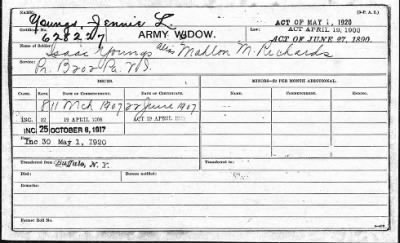 (3-P. A. S.)
Youngs, Jennie L. ACT OF MAY 1, 1920
Certificate No. 628227 ARMY WIDOW. Law: ACT APRIL 19, 1908
Name of Soldier: ACT OF JUNE 27, 1890
Isaac Youngs alias Mahlon M. Richards
Service: Pa. V. I.
ISSUES. MINORS—$2 PER MONTH ADDITIONAL.
CLASS. RATE. DATE OF COMMENCEMENT. DATE OF CERTIFICATE. DATE OF COMMENCEMENT.
8 11 Mch 1907 22 June 1907
INC. 12 19 APRIL 1908 ACT 19 APRIL
INC. 25 OCTOBER 6, 1917
Inc 30 May 1, 1920
Transferred from: Buffalo, N. Y.
Died: Bureau notified:
Remarks:
Former Roll No.